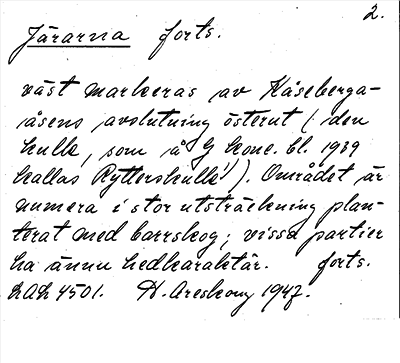 2.
Järarna forts.
väst markeras av Kåseberga-
åsens avslutning österut (den
kulle, som å G kone. bl. 1939
kallas Ryttershulle!). Området är
numera i stor utsträckning plan-
terat med barrskog; vissa partier
ha ännu hedkaraktär. forts.
LAL 4501. H. Areskoug 1947.